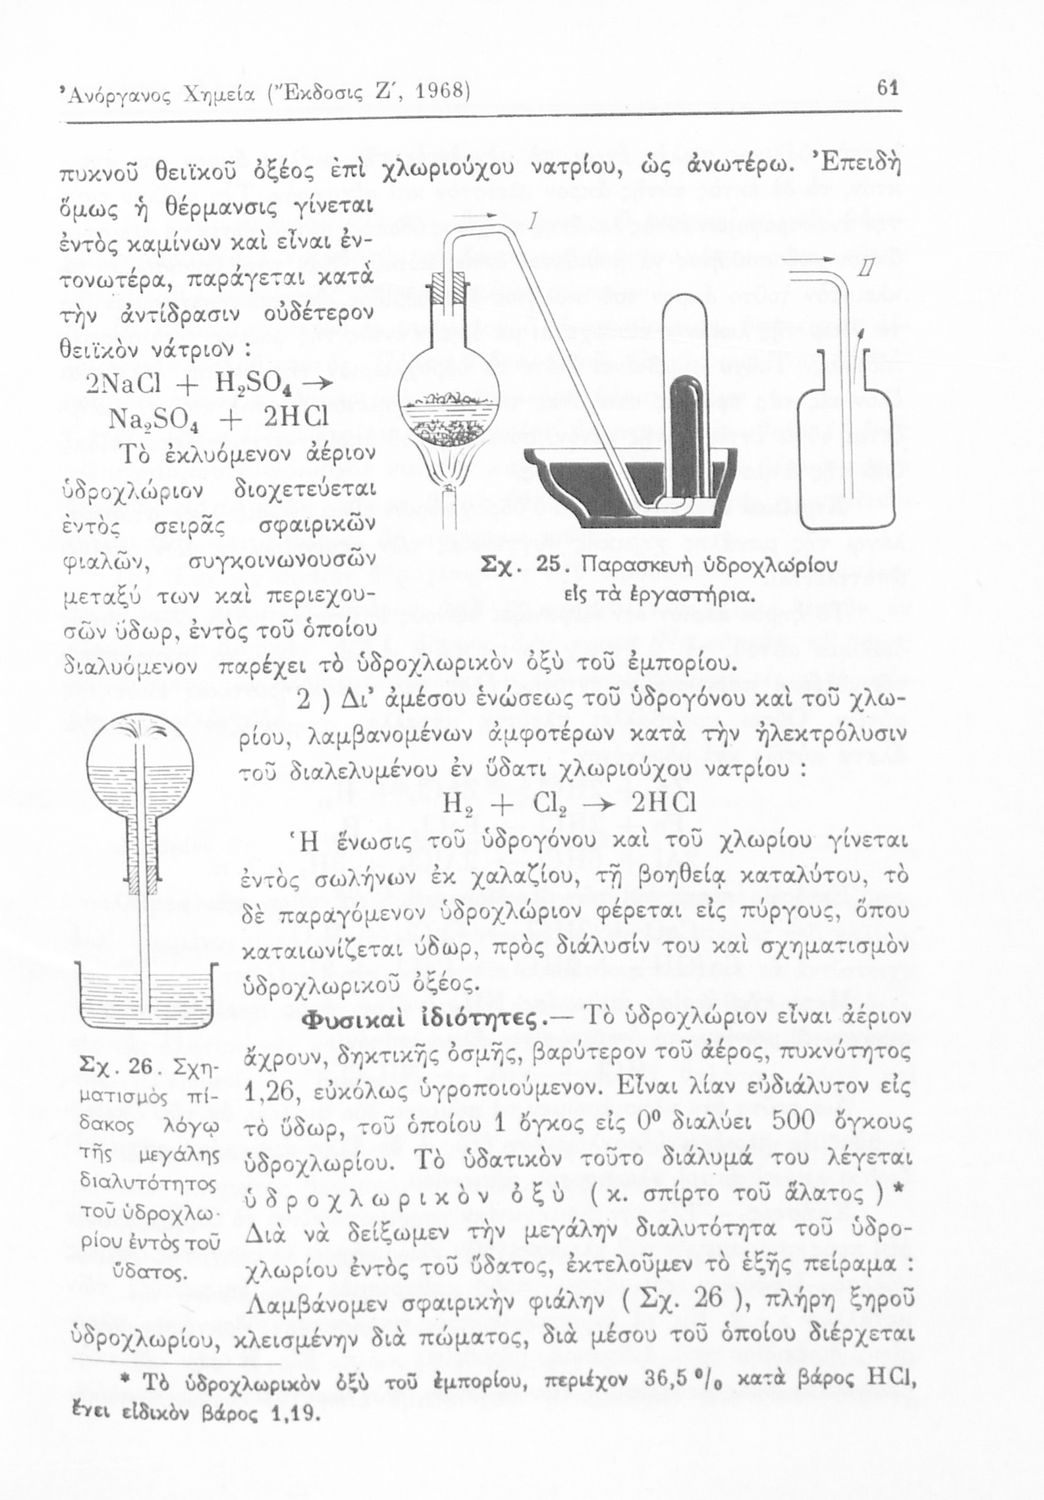 Ἀνόργανος Χημεία (Ἔκδοσις Ζ΄, 1968) 61
πυκνοῦ θειϊκοῦ ὀξέος ἐπὶ χλωριούχου νατρίου, ὡς ἀνωτέρω. Ἐπειδὴ
ὅμως ἡ θέρμανσις γίνεται
ἐντὸς καμίνων καὶ εἶναι ἐν-
τονωτέρα, παράγεται κατὰ
τὴν ἀντίδρασιν οὐδέτερον
θειϊκὸν νάτριον :
2NaCl + H₂SO₄ →
Na₂SO₄ + 2HCl
Τὸ ἐκλυόμενον ἀέριον
ὑδροχλώριον διοχετεύεται
ἐντὸς σειρᾶς σφαιρικῶν
φιαλῶν, συγκοινωνουσῶν
μεταξύ των καὶ περιεχου-
σῶν ὕδωρ, ἐντὸς τοῦ ὁποίου
διαλυόμενον παρέχει τὸ ὑδροχλωρικὸν ὀξὺ τοῦ ἐμπορίου.
I
II
Σχ. 25. Παρασκευὴ ὑδροχλωρίου
εἰς τὰ ἐργαστήρια.
2 ) Δι' ἀμέσου ἑνώσεως τοῦ ὑδρογόνου καὶ τοῦ χλω-
ρίου, λαμβανομένων ἀμφοτέρων κατὰ τὴν ἠλεκτρόλυσιν
τοῦ διαλελυμένου ἐν ὕδατι χλωριούχου νατρίου :
H₂ + Cl₂ → 2HCl
Ἡ ἕνωσις τοῦ ὑδρογόνου καὶ τοῦ χλωρίου γίνεται
ἐντὸς σωλήνων ἐκ χαλαζίου, τῇ βοηθείᾳ καταλύτου, τὸ
δὲ παραγόμενον ὑδροχλώριον φέρεται εἰς πύργους, ὅπου
καταιωνίζεται ὕδωρ, πρὸς διάλυσίν του καὶ σχηματισμὸν
ὑδροχλωρικοῦ ὀξέος.
Φυσικαὶ ἰδιότητες.— Τὸ ὑδροχλώριον εἶναι ἀέριον
ἄχρουν, δηκτικῆς ὀσμῆς, βαρύτερον τοῦ ἀέρος, πυκνότητος
1,26, εὐκόλως ὑγροποιούμενον. Εἶναι λίαν εὐδιάλυτον εἰς
τὸ ὕδωρ, τοῦ ὁποίου 1 ὄγκος εἰς 0° διαλύει 500 ὄγκους
ὑδροχλωρίου. Τὸ ὑδατικὸν τοῦτο διάλυμά του λέγεται
ὑδροχλωρικὸν ὀξὺ ( κ. σπίρτο τοῦ ἅλατος ) *
Διὰ νὰ δείξωμεν τὴν μεγάλην διαλυτότητα τοῦ ὑδρο-
χλωρίου ἐντὸς τοῦ ὕδατος, ἐκτελοῦμεν τὸ ἑξῆς πείραμα :
Λαμβάνομεν σφαιρικὴν φιάλην ( Σχ. 26 ), πλήρη ξηροῦ
ὑδροχλωρίου, κλεισμένην διὰ πώματος, διὰ μέσου τοῦ ὁποίου διέρχεται
Σχ. 26. Σχη-
ματισμὸς πί-
δακος λόγῳ
τῆς μεγάλης
διαλυτότητος
τοῦ ὑδροχλω-
ρίου ἐντὸς τοῦ
ὕδατος.
* Τὸ ὑδροχλωρικὸν ὀξὺ τοῦ ἐμπορίου, περιέχον 36,5 % κατὰ βάρος HCl,
ἔχει εἰδικὸν βάρος 1,19.